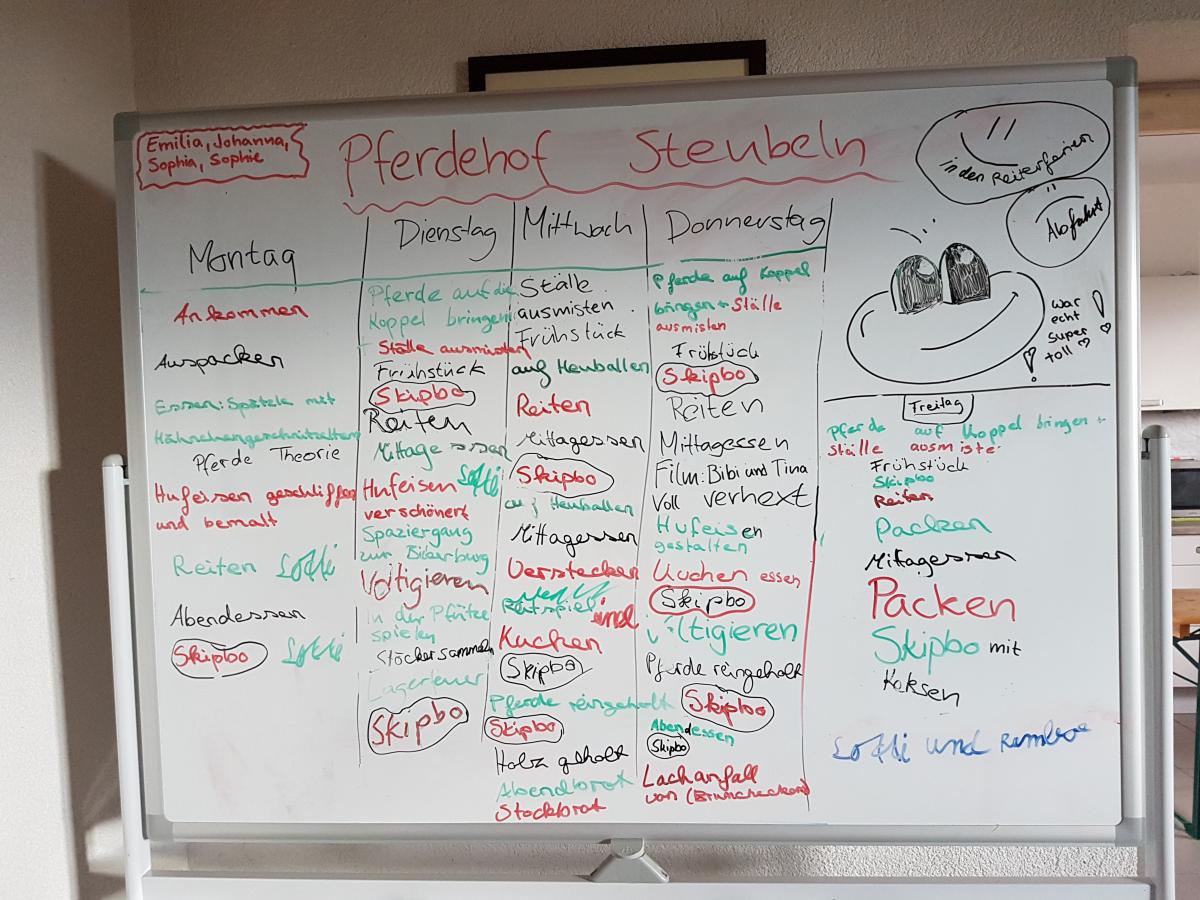 Emilia, Johanna,
Sophia, Sophie
Pferdehof Steubeln
in den Reiterferien
Abfahrt
war
echt
super
toll
Montag
Ankommen
Auspacken
Essen: Spätzle mit
Hähnchengeschnitzelten
Pferde Theorie
Hufeisen geschliffen
und bemalt
Reiten Lotti
Abendessen
Skipbo Lotti
Dienstag
Pferde auf die
Koppel bringen
Ställe ausmisten
Frühstück
Skipbo
Reiten
Mittagessen
Hufeisen Lotti
verschönert
Spaziergang
zur
Voltigieren
in der Pfütze
spielen
Stöcker sammeln
Lagerfeuer
Skipbo
Mittwoch
Ställe
ausmisten
Frühstück
auf Heuballen
Reiten
Mittagessen
Skipbo
auf Heuballen
Mittagessen
Verstecken
und
Kuchen
Skipbo
Pferde reingeholt
Skipbo
Holz geholt
Abendbrot
Stockbrot
Donnerstag
Pferde auf Koppel
bringen + Ställe
ausmisten
Frühstück
Skipbo
Reiten
Mittagessen
Film: Bibi und Tina
Voll verhext
Hufeisen
gestalten
Kuchen essen
Skipbo
Voltigieren
Pferde reingeholt
Skipbo
Abendessen
Skipbo
Lachanfall
von
Freitag
Pferde auf Koppel bringen +
Ställe ausmisten
Frühstück
Skipbo
Reiten
Packen
Mittagessen
Packen
Skipbo mit
Keksen
Lotti und